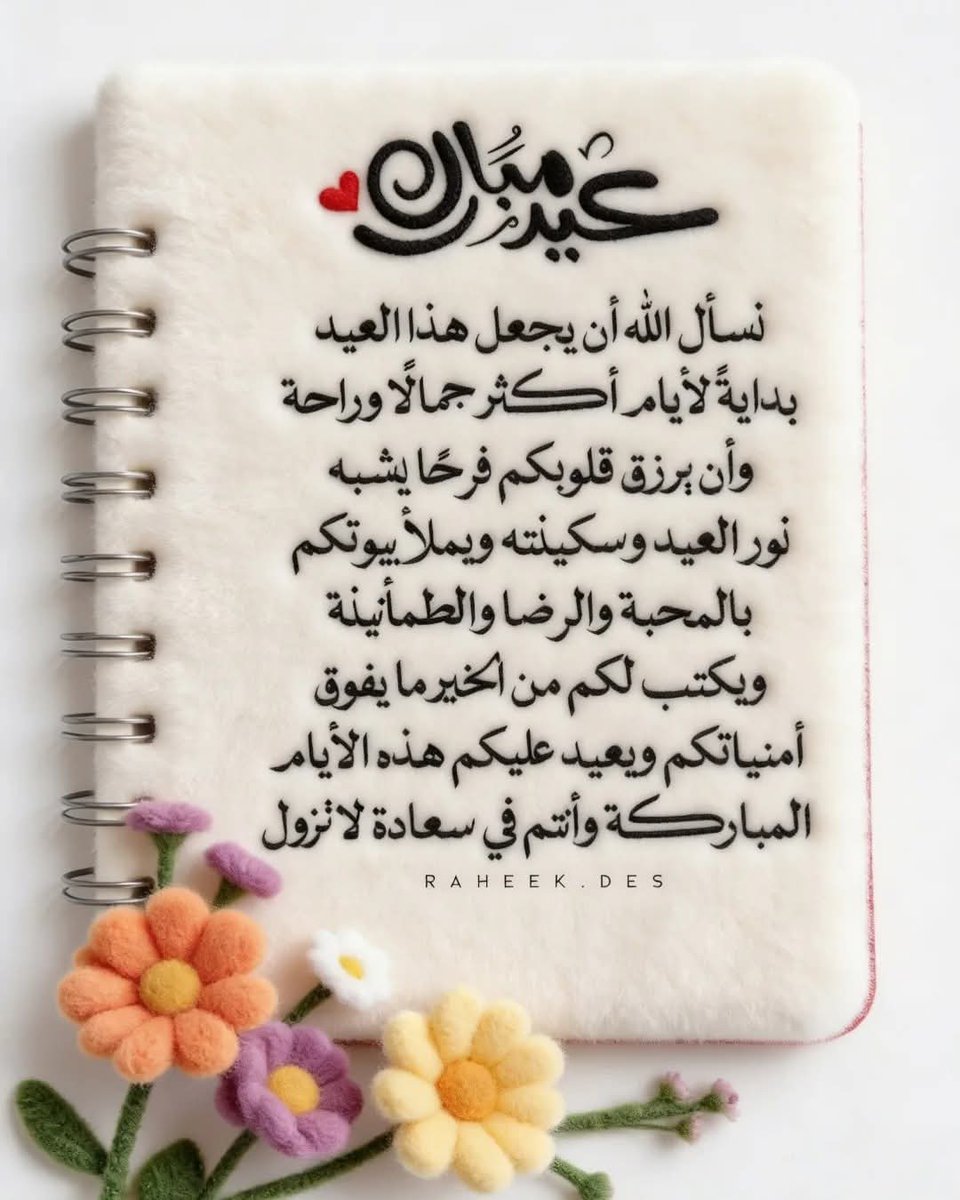 عيد مبارك
نسأل الله أن يجعل هذا العيد
بدايةً لأيام أكثر جمالًا وراحة
وأن يرزق قلوبكم فرحًا يشبه
نور العيد وسكينته ويملأ بيوتكم
بالمحبة والرضا والطمأنينة
ويكتب لكم من الخير ما يفوق
أمنياتكم ويعيد عليكم هذه الأيام
المباركة وأنتم في سعادة لا تزول
RAHEEK.DES